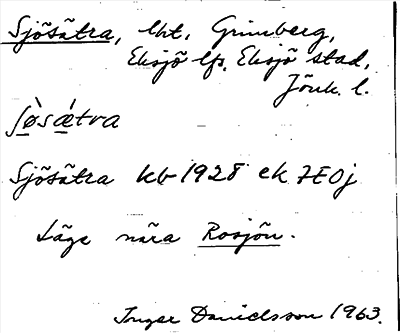 Sjösätra, lht. Grimberg,
Eksjö lfs. Eksjö stad,
Jönk. l.
ʃø̀sǽtra
Sjösätra kb 1928 ek 7E0j
Läge nära Rosjön.
Inger Danielsson 1963.